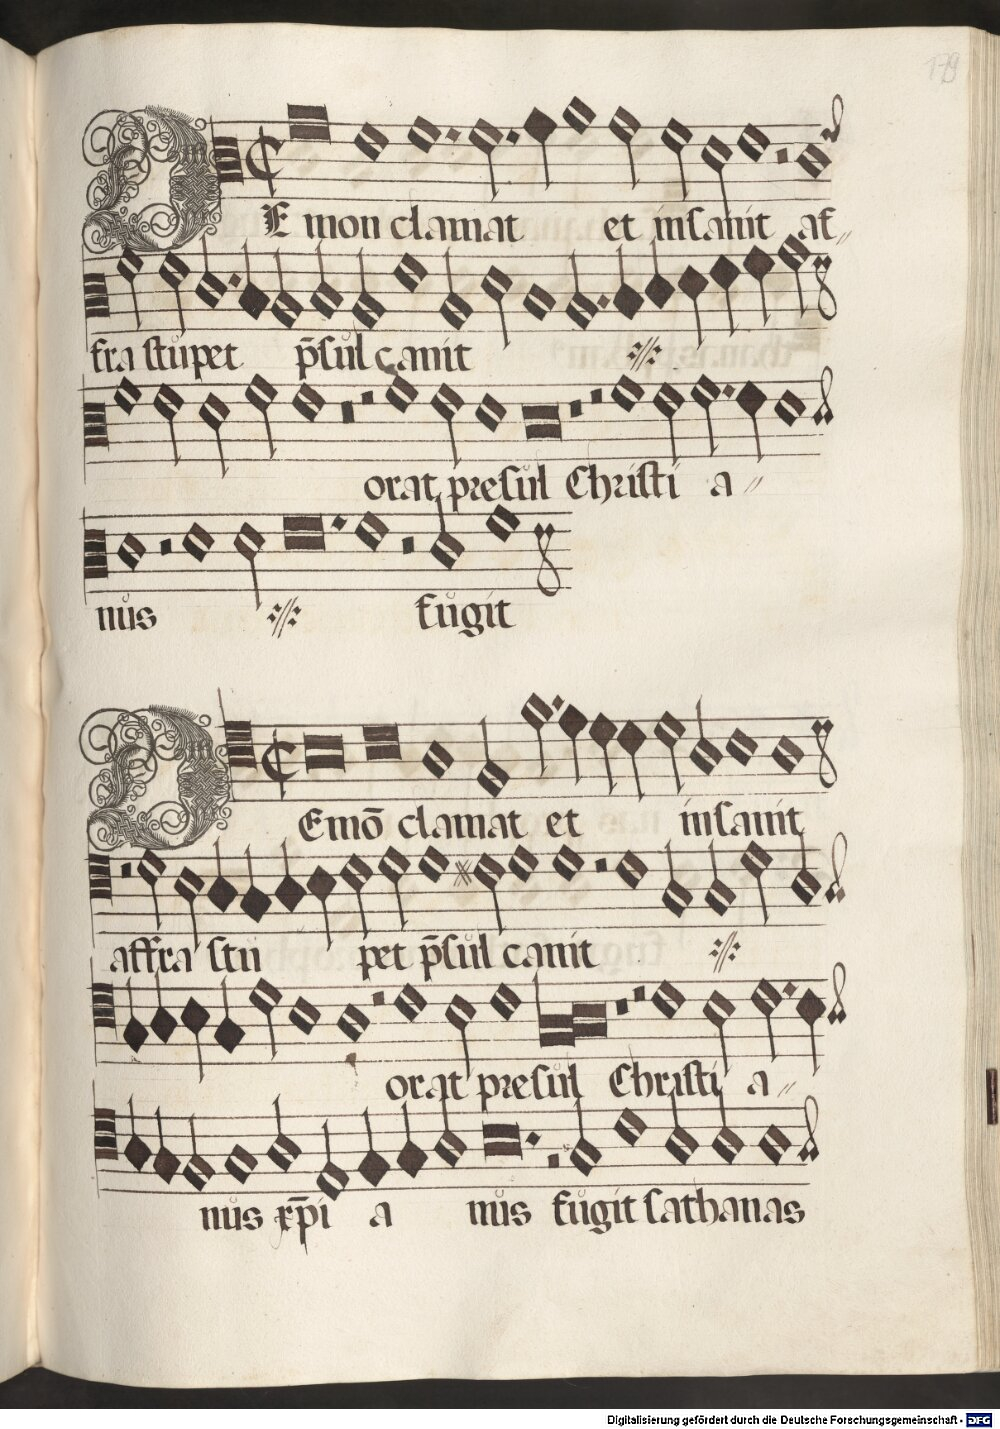 179
DE mon clamat et insanit af„
fra stupet p̄sul canit ·//·
orat presul Christi a„
nus ·//· fugit
DEmō clamat et insanit
affra stu pet p̄sul canit ·//·
orat presul Christi a„
nus xp̄i a nus fugit sathanas
Digitalisierung gefördert durch die Deutsche Forschungsgemeinschaft - DFG